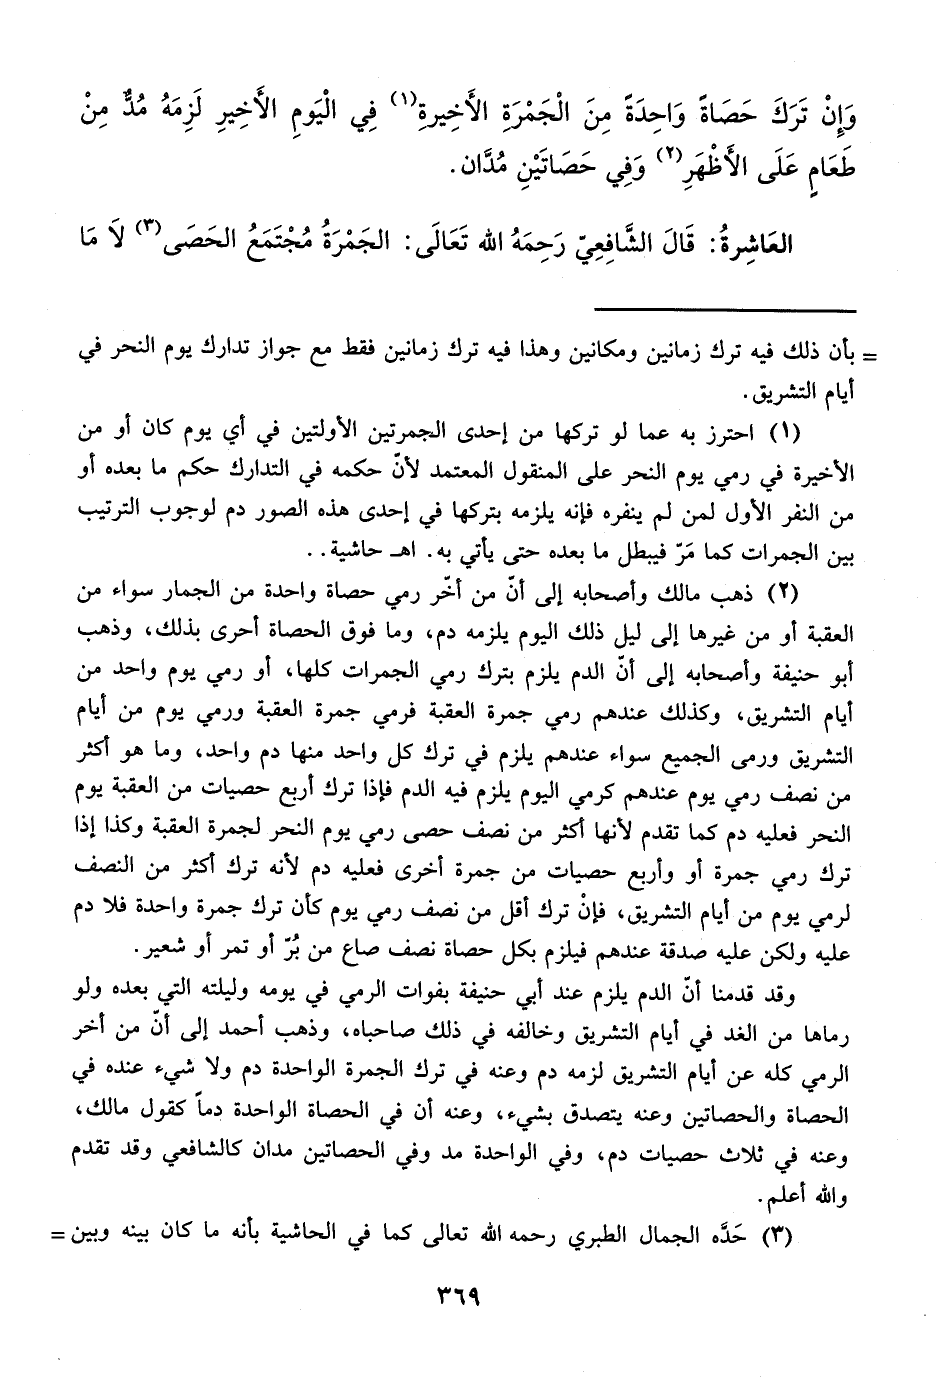 وَإِنْ تَرَكَ حَصَاةً وَاحِدَةً مِنَ الْجَمْرَةِ الأَخِيرةِ(١) فِي الْيَومِ الأَخِيرِ لَزِمَهُ مُدٌّ مِنْ
طَعَامٍ عَلَى الأَظْهَرِ(٢) وَفِي حَصَاتَيْنِ مُدَّان.
العَاشِرةُ: قَالَ الشَّافِعِيّ رَحِمَهُ الله تَعَالَى: الجَمْرَةُ مُجْتَمَعُ الحَصَى(٣) لاَ مَا
= بأن ذلك فيه ترك زمانين ومكانين وهذا فيه ترك زمانين فقط مع جواز تدارك يوم النحر في
أيام التشريق.
(١) احترز به عما لو تركها من إحدى الجمرتين الأولتين في أي يوم كان أو من
الأخيرة في رمي يوم النحر على المنقول المعتمد لأنّ حكمه في التدارك حكم ما بعده أو
من النفر الأول لمن لم ينفره فإنه يلزمه بتركها في إحدى هذه الصور دم لوجوب الترتيب
بين الجمرات كما مَرّ فيبطل ما بعده حتى يأتي به. اهـ حاشية. .
(٢) ذهب مالك وأصحابه إلى أنّ من أخّر رمي حصاة واحدة من الجمار سواء من
العقبة أو من غيرها إلى ليل ذلك اليوم يلزمه دم، وما فوق الحصاة أحرى بذلك، وذهب
أبو حنيفة وأصحابه إلى أنّ الدم يلزم بترك رمي الجمرات كلها، أو رمي يوم واحد من
أيام التشريق، وكذلك عندهم رمي جمرة العقبة فرمي جمرة العقبة ورمي يوم من أيام
التشريق ورمى الجميع سواء عندهم يلزم في ترك كل واحد منها دم واحد، وما هو أكثر
من نصف رمي يوم عندهم كرمي اليوم يلزم فيه الدم فإذا ترك أربع حصيات من العقبة يوم
النحر فعليه دم كما تقدم لأنها أكثر من نصف حصى رمي يوم النحر لجمرة العقبة وكذا إذا
ترك رمي جمرة أو وأربع حصيات من جمرة أخرى فعليه دم لأنه ترك أكثر من النصف
لرمي يوم من أيام التشريق، فإنْ ترك أقل من نصف رمي يوم كأن ترك جمرة واحدة فلا دم
عليه ولكن عليه صدقة عندهم فيلزم بكل حصاة نصف صاع من بُرّ أو تمر أو شعير.
وقد قدمنا أنّ الدم يلزم عند أبي حنيفة بفوات الرمي في يومه وليلته التي بعده ولو
رماها من الغد في أيام التشريق وخالفه في ذلك صاحباه، وذهب أحمد إلى أنّ من أخر
الرمي كله عن أيام التشريق لزمه دم وعنه في ترك الجمرة الواحدة دم ولا شيء عنده في
الحصاة والحصاتين وعنه يتصدق بشيء، وعنه أن في الحصاة الواحدة دماً كقول مالك،
وعنه في ثلاث حصيات دم، وفي الواحدة مد وفي الحصاتين مدان كالشافعي وقد تقدم
والله أعلم.
(٣) حَدَّه الجمال الطبري رحمه الله تعالى كما في الحاشية بأنه ما كان بينه وبين =
٣٦٩